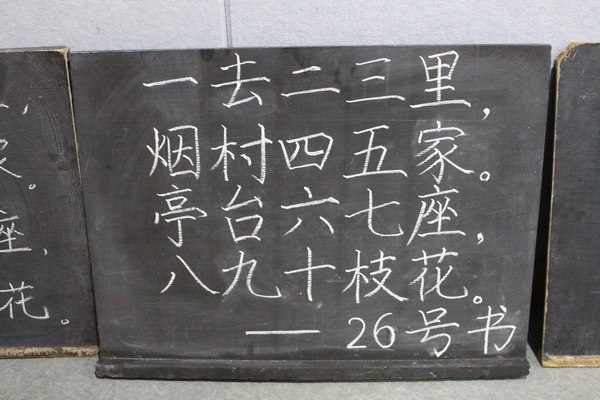 一去二三里，
烟村四五家。
亭台六七座，
八九十枝花。
—— 26号书
座，
花。